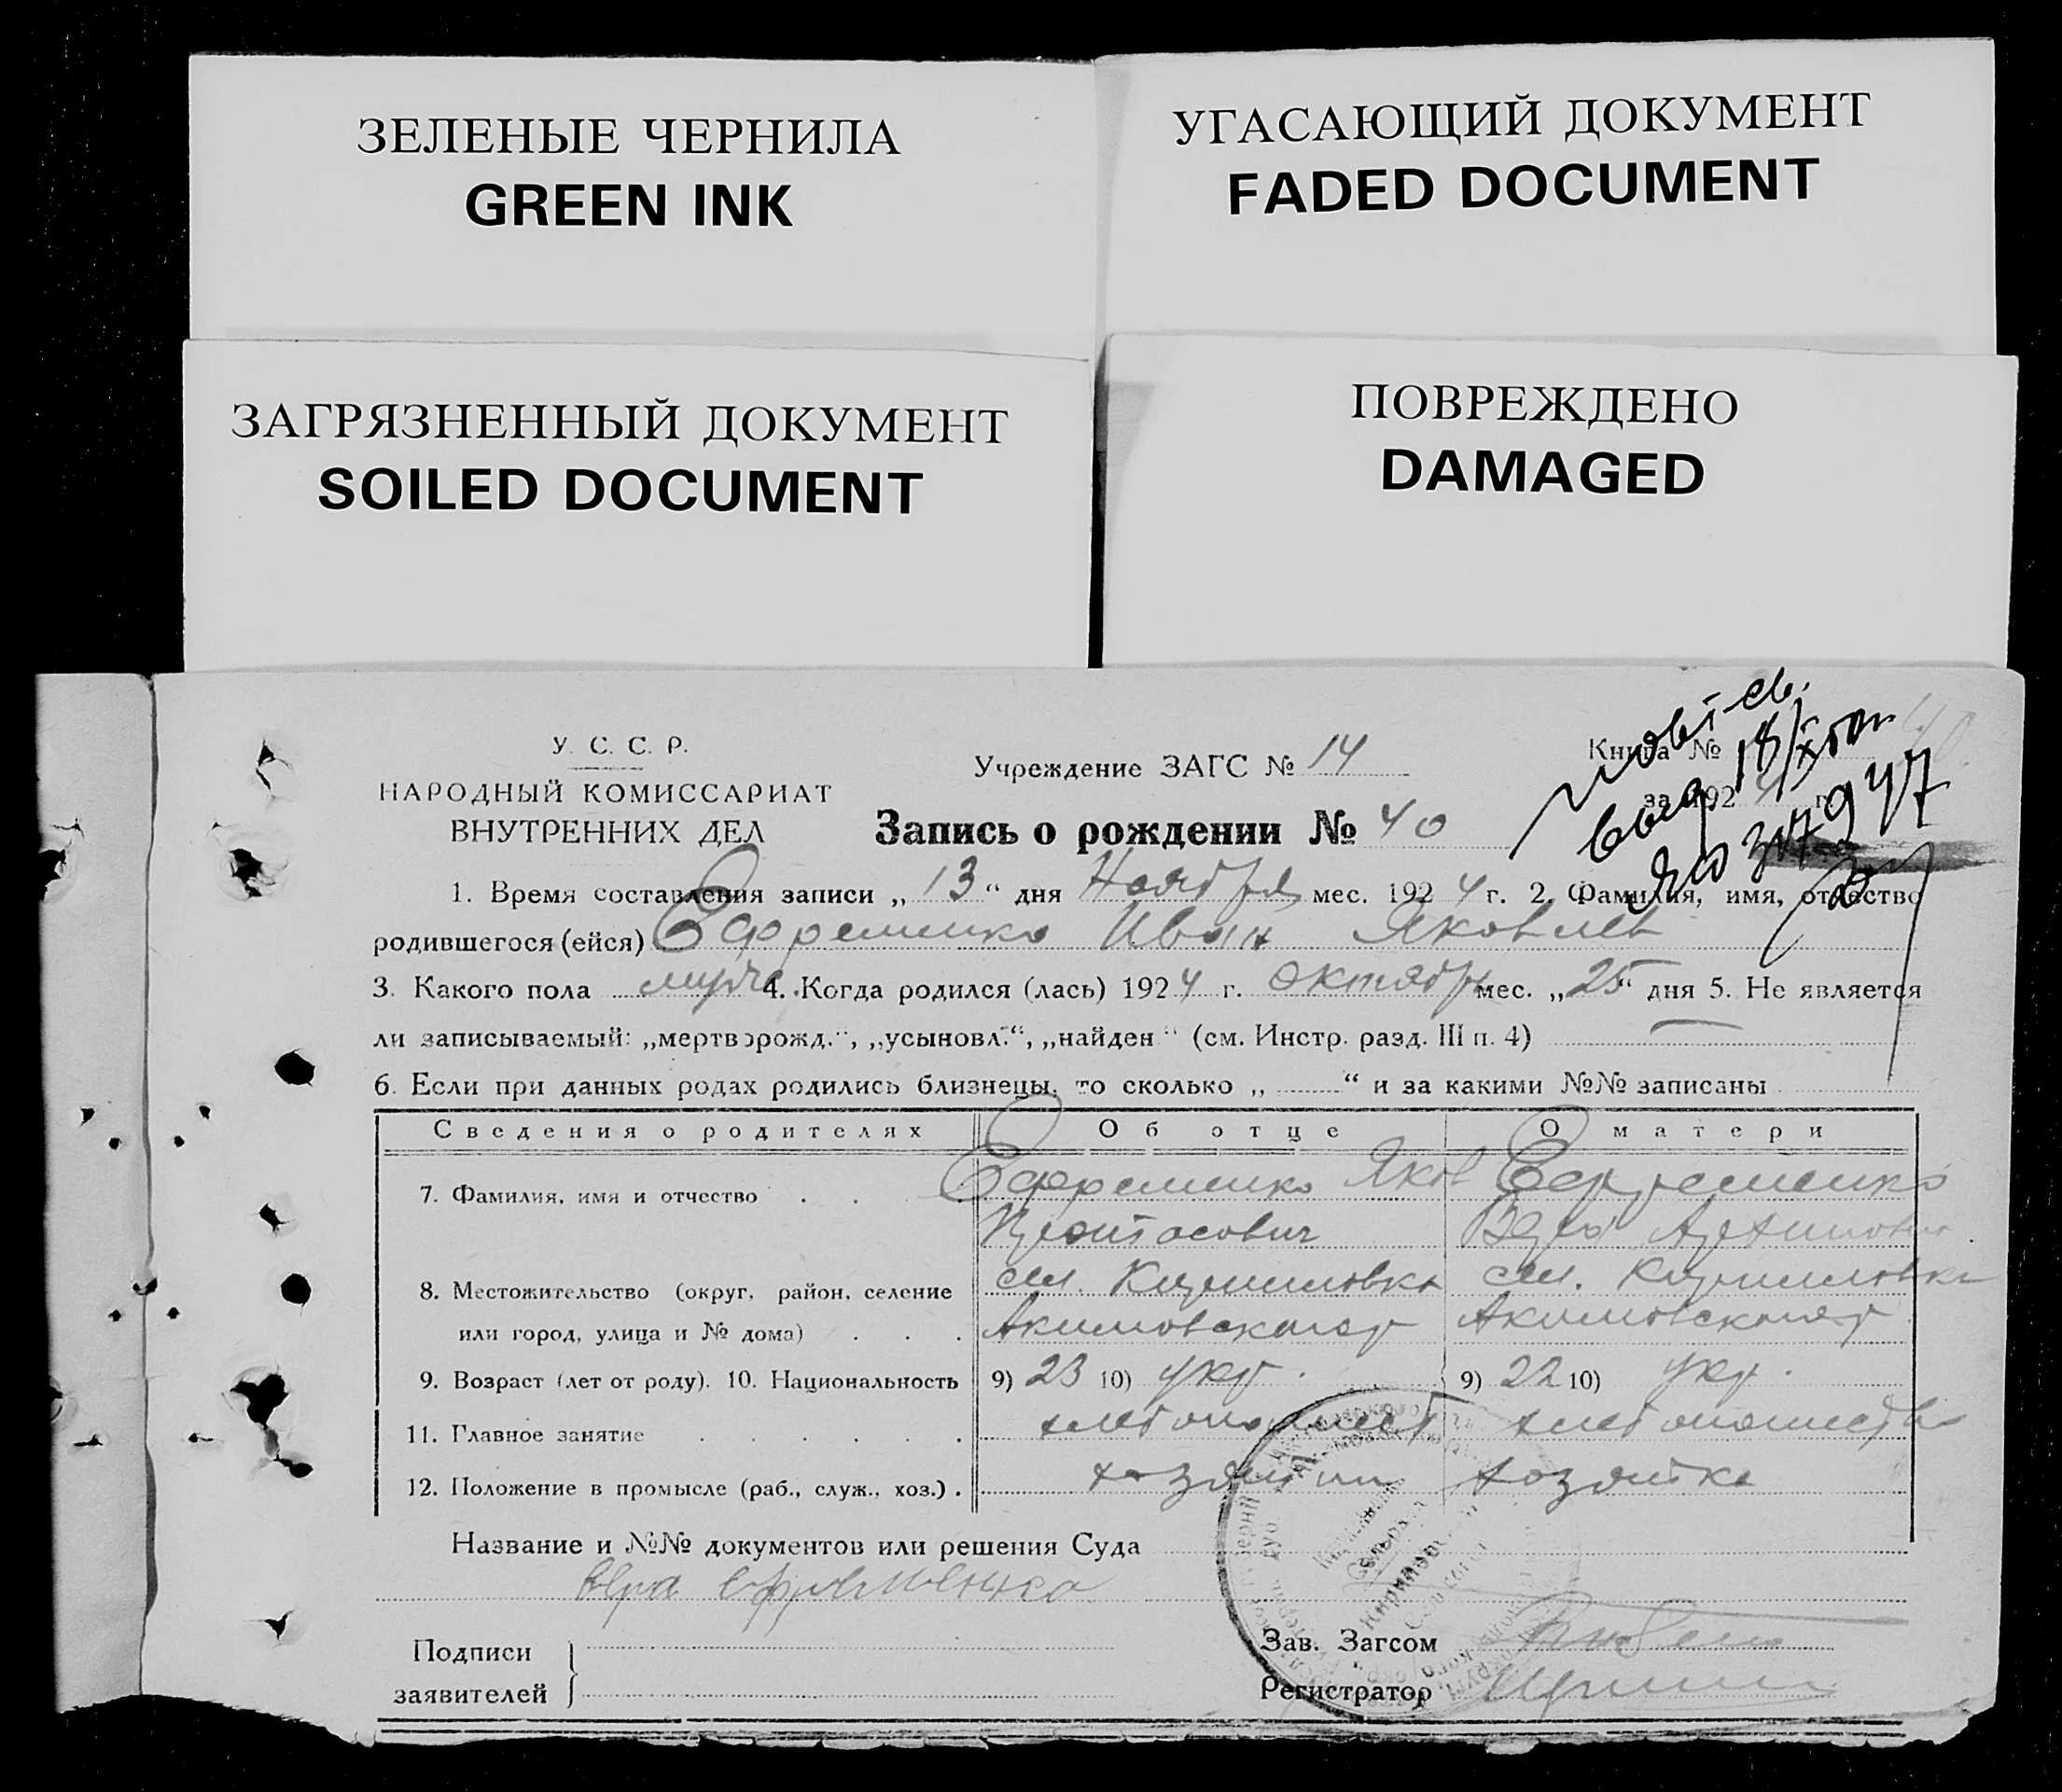 ЗЕЛЕНЫЕ ЧЕРНИЛА
GREEN INK
УГАСАЮЩИЙ ДОКУМЕНТ
FADED DOCUMENT
ЗАГРЯЗНЕННЫЙ ДОКУМЕНТ
SOILED DOCUMENT
ПОВРЕЖДЕНО
DAMAGED
У. С. С. Р.
НАРОДНЫЙ КОМИССАРИАТ
ВНУТРЕННИХ ДЕЛ
Учреждение ЗАГС № 14
Запись о рождении № 40
Книга №
за 1924 г.
повт. св.
выд 18/X
ЯЮ 317947
1. Время составления записи „13“ дня Ноября мес. 1924 г. 2. Фамилия, имя, отчество
родившегося (ейся) Ефременко Иван Яковлев
3. Какого пола мужс. 4. Когда родился (лась) 1924 г. октябр мес. „25“ дня 5. Не является
ли записываемый: „мертворожд.“, „усыновл.“, „найден“ (см. Инстр. разд. III п. 4) —
6. Если при данных родах родились близнецы, то сколько „ “ и за какими №№ записаны
Сведения о родителях Об отце О матери
7. Фамилия, имя и отчество . . Ефременко Яков Ефременко
Протасович Вера
8. Местожительство (округ, район, селение сел. Кирилловка сел. Кирилловка
или город, улица и № дома) . . . Акимовского р Акимовского р
9. Возраст (лет от роду). 10. Национальность 9) 23 10) укр. 9) 22 10) укр.
11. Главное занятие . . . . . . хлебопашест хлебопашеств
12. Положение в промысле (раб., служ., хоз.) . хозяин хозяйка
Название и №№ документов или решения Суда
Вера Ефременко
Подписи
заявителей
Зав. Загсом
Регистратор